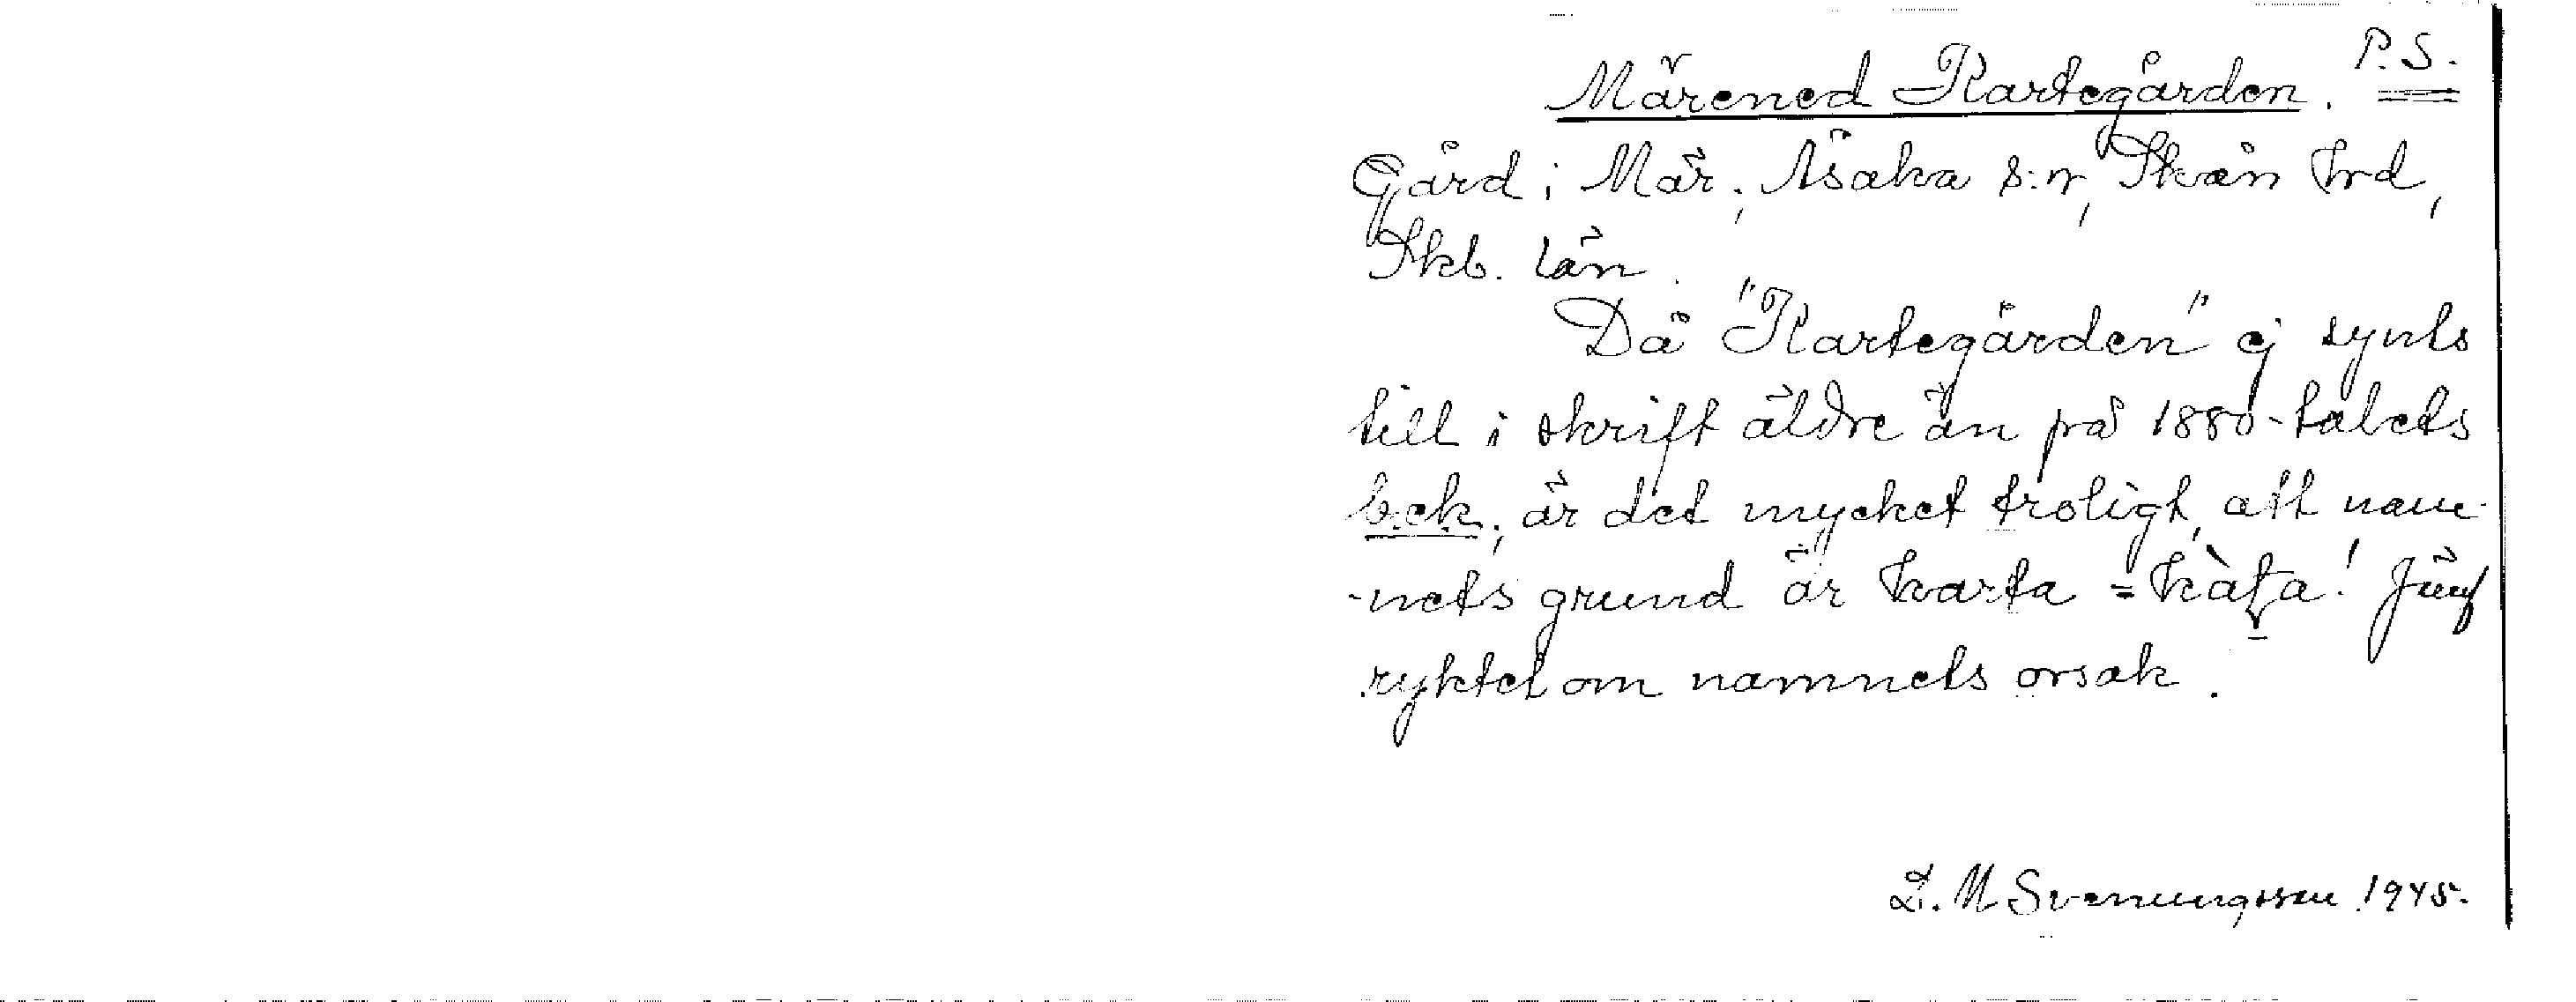 P.S.
Märened Kartegården.
Gård i Mär, Åsaka s:n, Skån hrd,
Skb. län.
Då "Kartegården" ej synts
till i skrift äldre än på 1880-talets
b.ek., är det mycket troligt, att nam-
-nets grund är karta = kàta! Jämf
ryktet om namnets orsak.
L. M Svenungsson 1945.